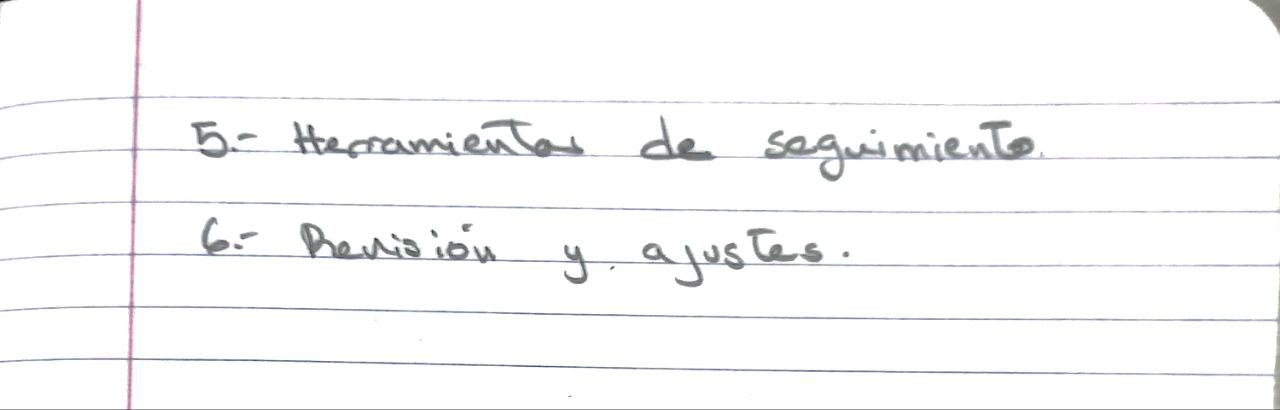 5.- Herramientas de seguimiento.
6.- Revisión y ajustes.